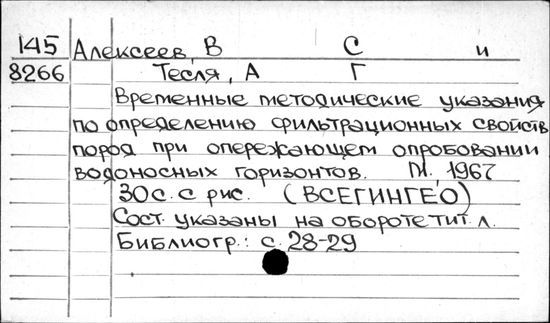 145 Алексеев, В С и
8266 Тесля, А Г
Временные методические указания
по определению фильтрационных свойств
пород при опережающем опробовании
водоносных горизонтов. М., 1967
30 с. с рис. (ВСЕГИНГЕО)
Сост. указаны на обороте тит. л.
Библиогр.: с. 28-29